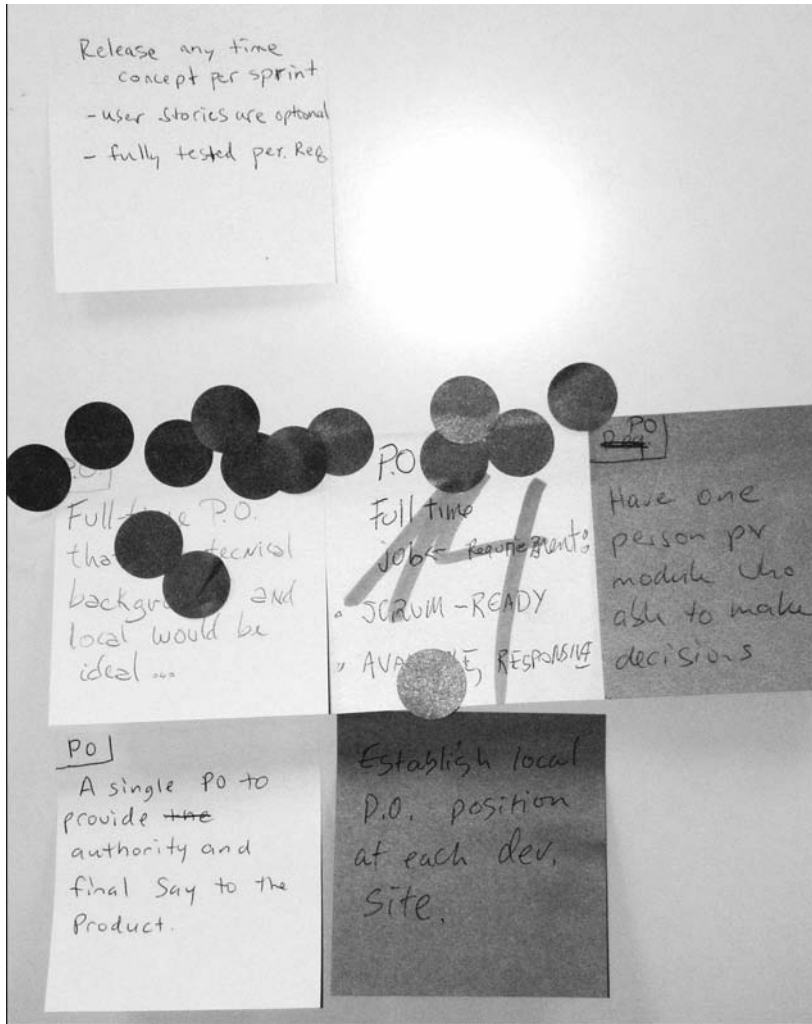 Release any time
concept per sprint
- user stories are optional
- fully tested per. Req
P.O
Full-time P.O.
tecnical
and
local would be
ideal ...
PO
Full time
job
SCRUM-READY
RESPONSIVE
PO
Have one
person pr
module who
able to make
decisions
PO
A single PO to
provide the
authority and
final say to the
Product.
Establish local
P.O. position
at each dev.
site.